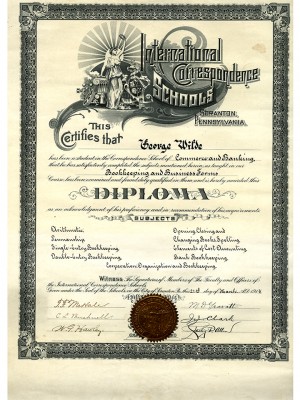 International
Correspondence
Schools
Scranton
Pennsylvania.
This
Certifies that
George Wilde
has been a student in the Correspondence School of Commerce and Banking,
that he has satisfactorily completed the subjects mentioned hereon as taught in our
Bookkeeping and Business Forms
Course has been examined and found duly qualified in them and is hereby awarded this
DIPLOMA
as an acknowledgment of his proficiency and in commemoration of his achievements
SUBJECTS
Arithmetic Opening, Closing and
Penmanship Changing Books, Spelling
Single-Entry Bookkeeping Elements of Cost Accounting
Double-Entry Bookkeeping Bank Bookkeeping
Corporation Organization and Bookkeeping.
Witness the Signatures of Members of the Faculty and Officers of
the International Correspondence Schools.
Given under the Seal of the Schools in the City of Scranton this day of March
J. J. Clark